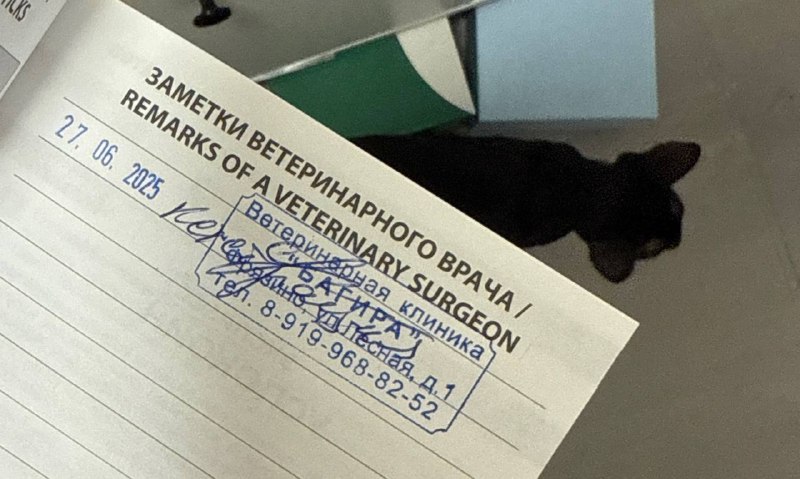 ЗАМЕТКИ ВЕТЕРИНАРНОГО ВРАЧА /
REMARKS OF A VETERINARY SURGEON
27. 06. 2025
Ветеринарная клиника
"БАГИРА"
ул Лесная, д.1
Тел. 8-919-968-82-52